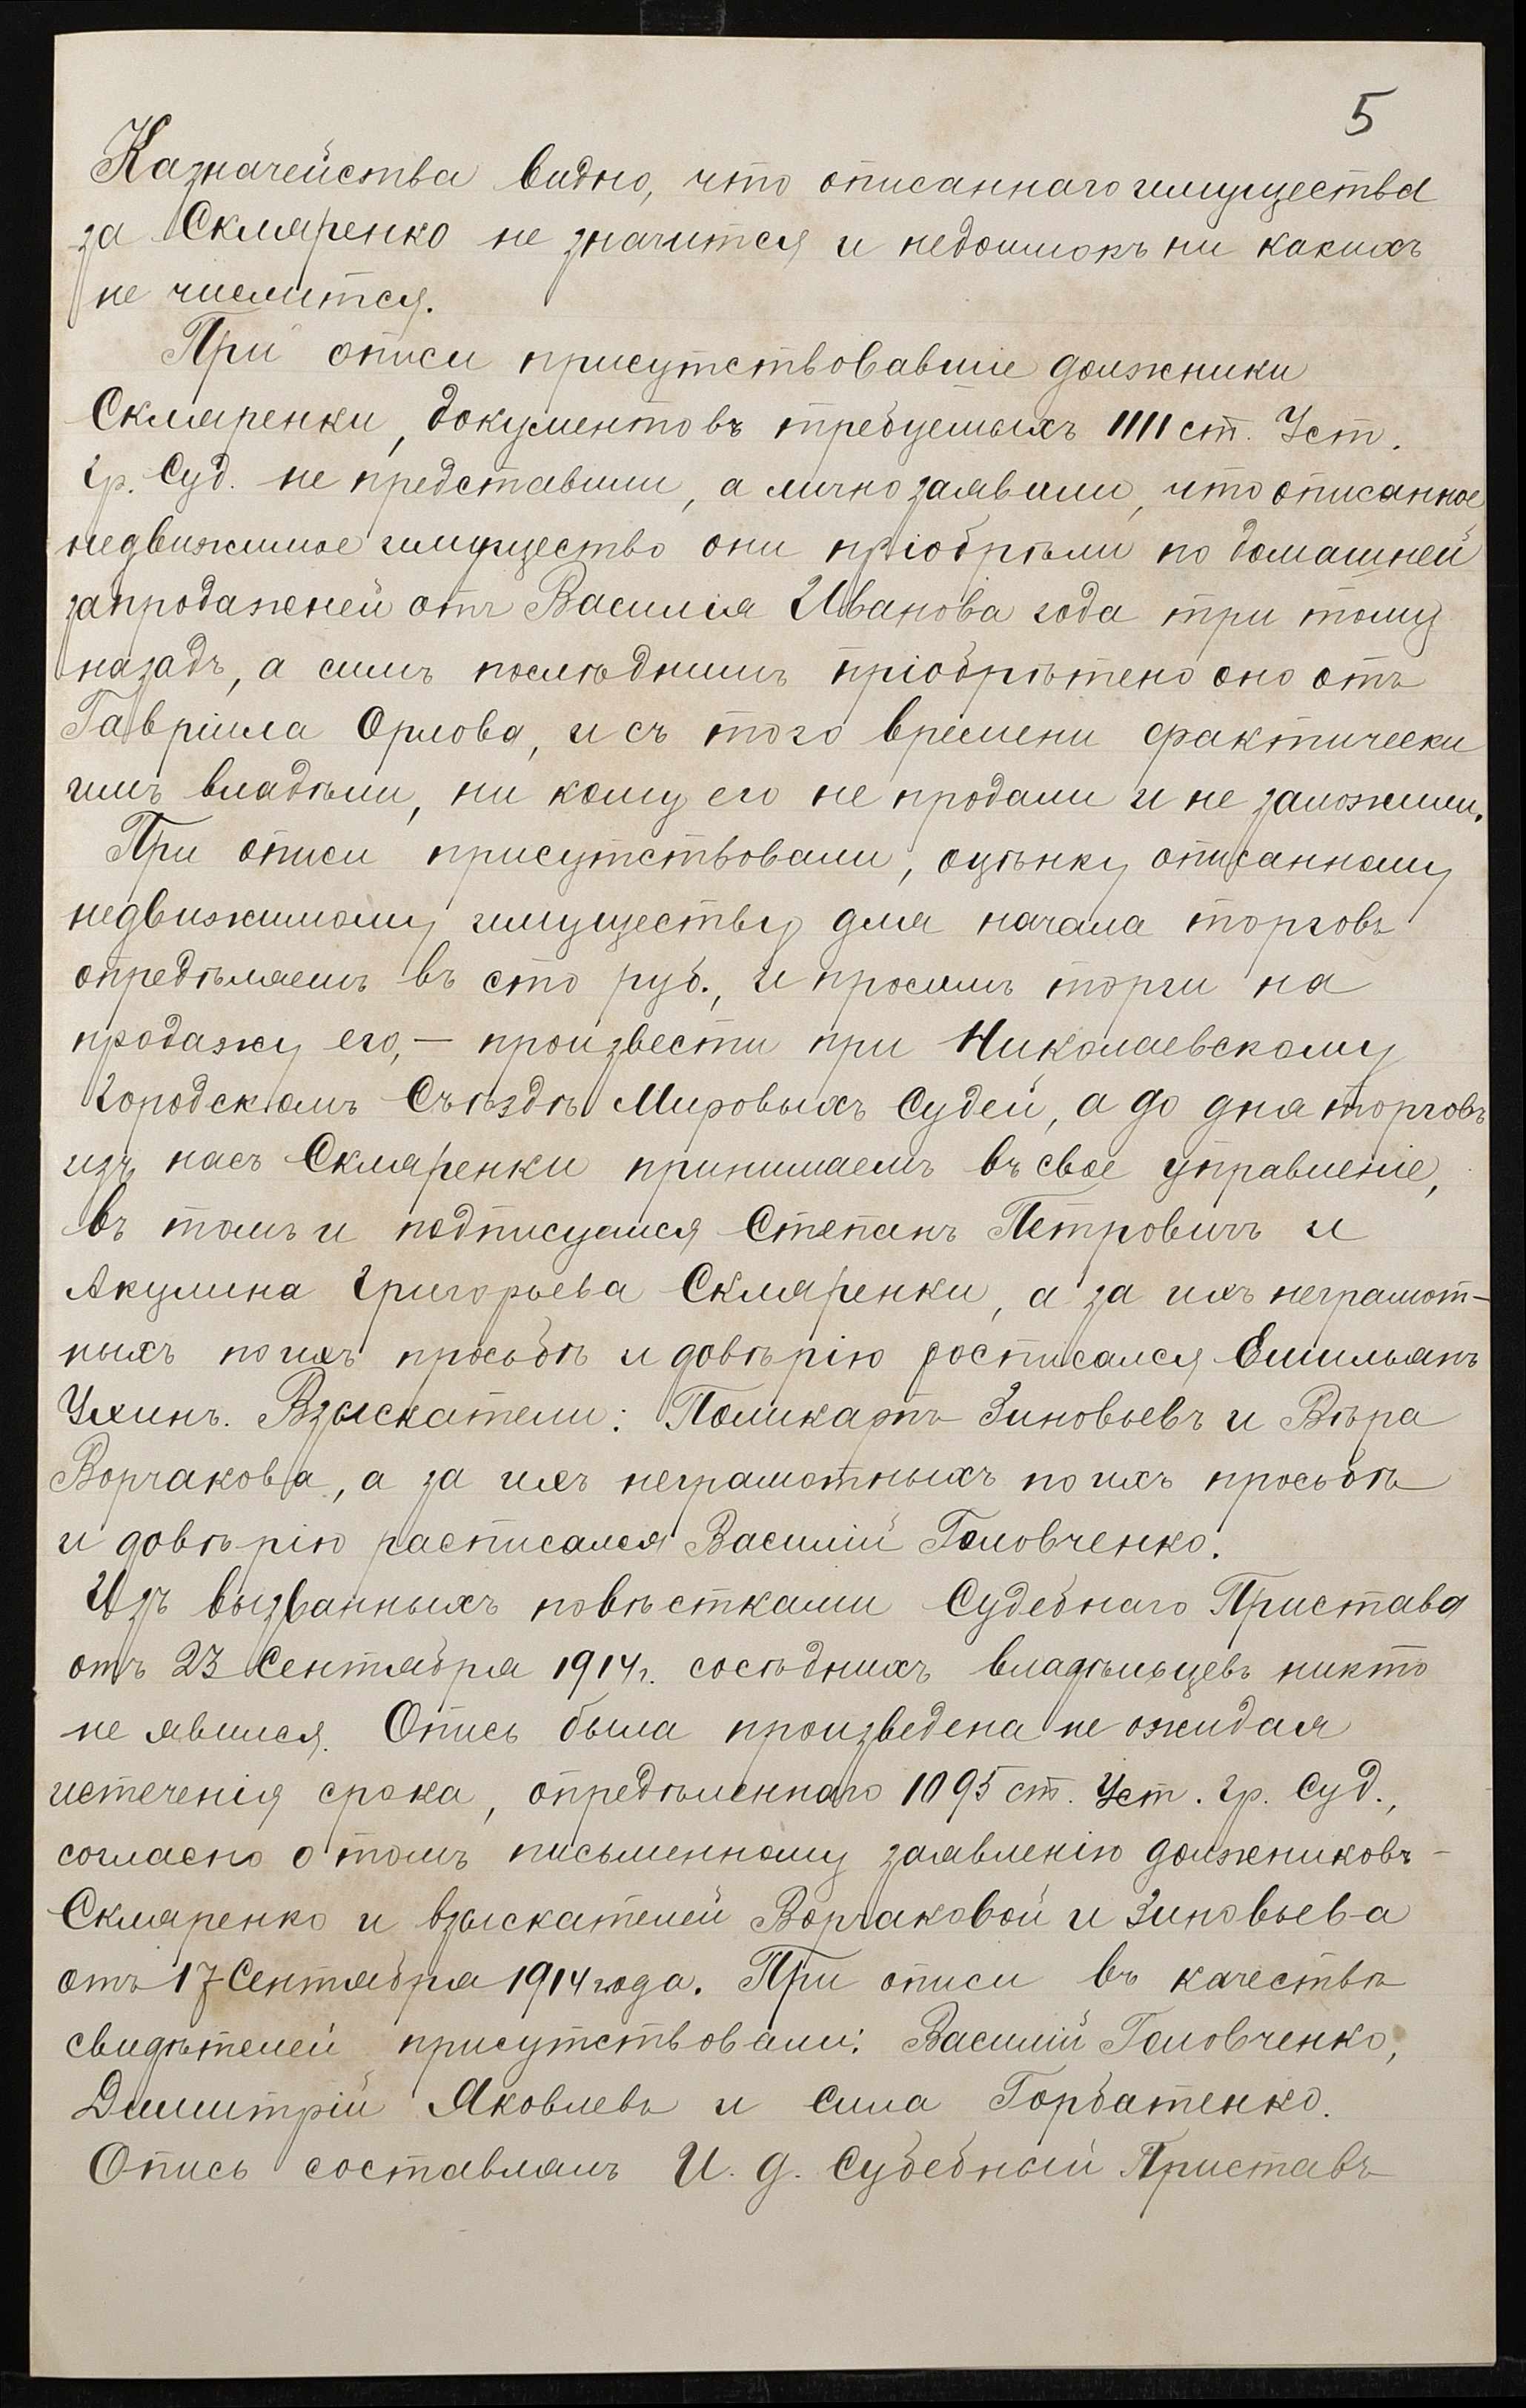 5
Казначейства видно, что описаннаго имущества
за Скляренко не значится и недоимокъ ни какихъ
не числится.
При описи присутствовавшіе должники
Скляренки, документовъ требуемыхъ 1111 ст. Уст.
Гр. Суд. не представили, а лично заявили, что описанное
недвижимое имущество они пріобрѣли по домашней
запродажней отъ Василія Иванова года три тому
назадъ, а симъ послѣднимъ пріобрѣтено оно отъ
Гавріила Орлова, и съ того времени фактически
имъ владѣли, ни кому его не продали и не заложили.
При описи присутствовали, оцѣнку описанному
недвижимому имуществу для начала торговъ
опредѣляемъ въ сто руб., и просимъ торги на
продажу его,— произвести при Николаевскому
Городскомъ Съѣздѣ Мировыхъ Судей, а до дня торговъ
изъ насъ Скляренки принимаемъ въ свое управленіе,
въ томъ и подписуемся Степанъ Петровичъ и
Акулина Григорьева Скляренки, а за ихъ неграмот-
ныхъ по ихъ просьбѣ и довѣрію росписался Емильянъ
Взыскатели: Поликарпъ Зиновьевъ и Вѣра
Ворчакова, а за ихъ неграмотныхъ по ихъ просьбѣ
и довѣрію расписался Василій Головченко.
Изъ вызванныхъ повѣстками Судебнаго Пристава
отъ 23 Сентября 1914 г. сосѣднихъ владѣльцевъ никто
не явился. Опись была произведена не ожидая
истеченія срока, опредѣленнаго 1095 ст. Уст. Гр. Суд.,
согласно о томъ письменному заявленію должниковъ-
Скляренко и взыскателей Ворчаковой и Зиновьева
отъ 17 Сентября 1914 года. При описи въ качествѣ
свидѣтелей присутствовали: Василій Головченко,
Димитрій Яковлевъ и Сила Горбатенко.
Опись составлялъ И. д. Судебный Приставъ